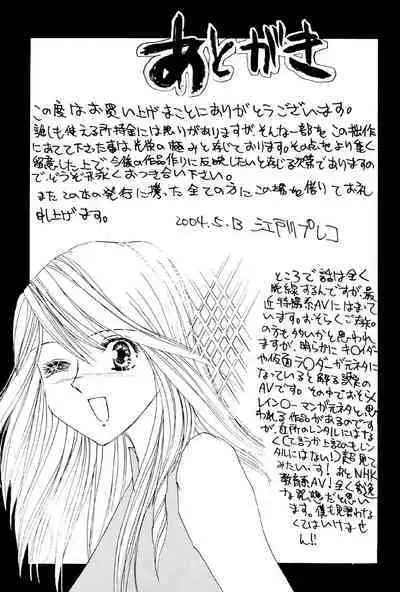 あとがき
この度はお買い上げまことにありがとうございます。
誰しも使える所持金には限りがありますが、そんな一部をこの拙作
にあてて下さった事は光栄の極みと存じております。その点をより重く
留意した上で今後の作品作りに反映したいと存じる次第でありますの
でどうぞ末永くおつき合い下さい。
またこの本の発行に携った全ての方にこの場を借りてお礼
申し上げます。
2004.5.13
ところで話は全く
脱線するんですが、最
近特撮系AVにはまって
います。おそらくご存知
の方も多いかと思われ
ますが、明らかにキ○イダー
や仮面ラ○ダーが元ネタに
なっていると解る
AVです。その中でおそらく
レイン○ーマンが元ネタと思
われる作品があるのです
が、近所のレンタルにはな
く(て言うか上記のもレン
タルにはない!)超見て
みたいっす!あとNHK
教育系AV!全く
な発想だと思い
ます。僕も見習わな
くてはいけませ
ん!!